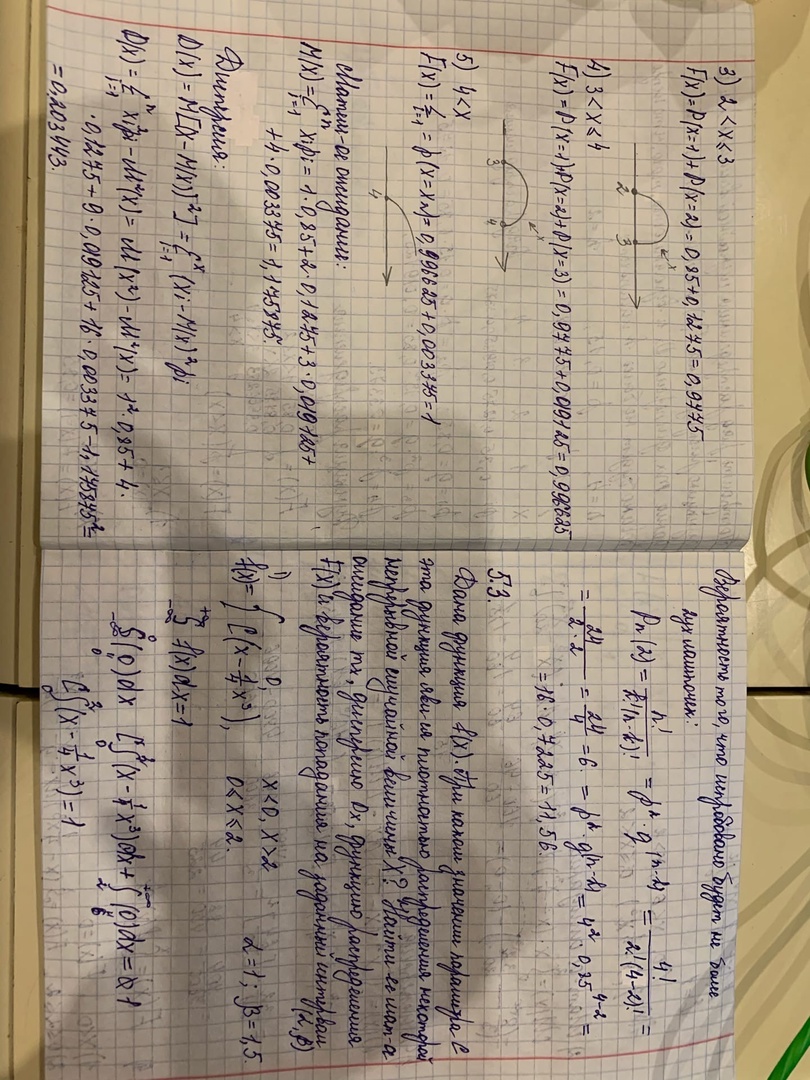 3) 2 < x ≤ 3
F(x) = P(x=1) + P(x=2) = 0,85 + 0,1275 = 0,9775
2 3 x
4) 3 < x ≤ 4
F(x) = P(x=1) + P(x=2) + P(x=3) = 0,9775 + 0,019125 = 0,996625
3 4 x
5) 4 < x
= p(x = x₂) = 0,996625 + 0,003375 = 1
4
ожидание:
M(x) = Σ xᵢpᵢ = 1·0,85 + 2·0,1275 + 3·0,019125 +
+ 4·0,003375 = 1,175875.
Дисперсия:
D(x) = M[(x - M(x))²] = Σ (xᵢ - M(x))² pᵢ
D(x) = Σ xᵢ²pᵢ - M²(x) = M(x²) - M²(x) = 1²·0,85 + 4·
·0,1275 + 9·0,019125 + 16·0,003375 - 1,175875² =
= 0,203443.
Вероятность того, что непробовано будет не более
двух лампочек:
Pₙ(2) = n!/k!(n-k)! = pᵏ·q^(n-k) = 4!/2!(4-2)! =
= 24/2·2 = 24/4 = 6. = pᵏ·q^(n-k) = 4²·0,85⁴⁻² =
= 16·0,7225 = 11,56.
53.
Дана функция f(x). При каком значении параметра C
эта функция явл-ся плотностью распределения некоторой
непрерывной случайной величины X? Найти ее мат-е
ожидание mx, дисперсию Dx, функцию распределения
F(x) и вероятность попадания на заданный интервал (α,β)
1)
f(x) = { 0, x < 0, x > 2
C(x - 1/4 x³), 0 ≤ x ≤ 2. α = 1; β = 1,5.
∫ f(x)dx = 1
∫(0)dx C∫(x - 1/4 x³)dx + ∫(0)dx = 1
C∫(x - 1/4 x³) = 1